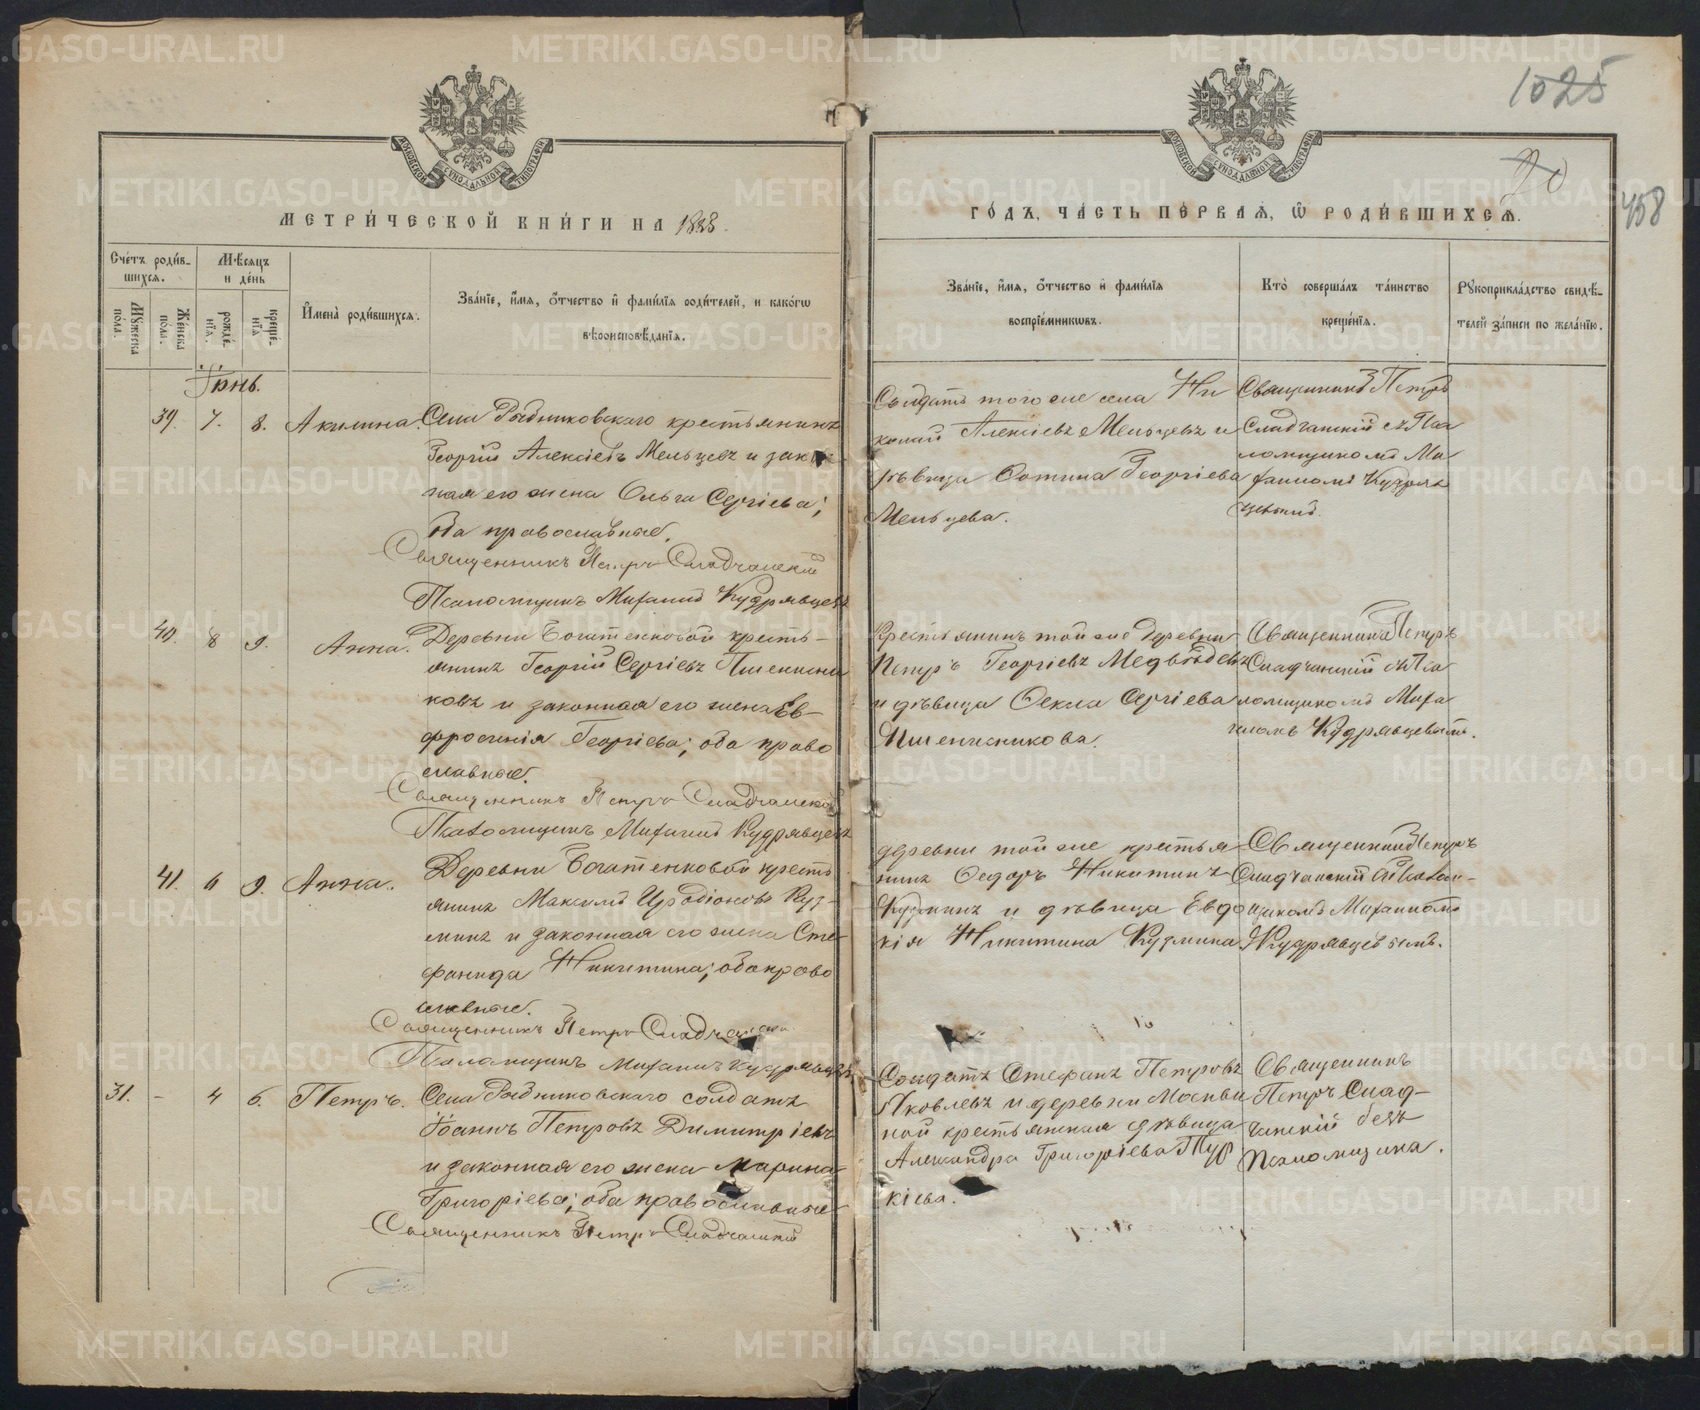 1025
20
458
МЕТРИ́ЧЕСКОЙ КНИ́ГИ НА 1888.
ГО́ДЪ, ЧА́СТЬ ПЕ́РВАѦ, Ѽ РОДИ́ВШИХСѦ.
Сче́тъ роди́в-
шихся.
Мѣ́сяцъ
и де́нь
Мꙋ́жеска
по́ла.
Же́нска
по́ла.
рожде́-
нїѧ.
креще́-
нїѧ
Имена̀ роди́вшихся.
Зва́нїе, и́мѧ, ѻ́тчество и҆ фами́лїѧ роди́телей, и како́гѡ
вѣроисповѣ́данїѧ.
Зва́нїе, и́мѧ, ѻ́тчество и҆ фами́лїѧ
воспрїе́мникѡвъ.
Кто̀ соверша́лъ та́инство
креще́нїѧ.
Рꙋкоприкла́дство свидѣ́-
телей за́писи по жела́нїю.
Іюнь.
39. 7. 8. Акилина.
Села Рыбниковскаго крестьянинъ
Георгій Алексіевъ Мельцевъ и закон
ная его жена Ольга Сергіева;
оба православные.
Священникъ Петръ Сладчанскій
Псаломщикъ Михаилъ Кудрявцевъ
Солдатъ того же села Ни
колай Алексіевъ Мельцевъ и
дѣвица Фотина Георгіева
Мельцева.
Священникъ Петръ
Сладчанскій съ Пса
ломщикомъ Ми
хаиломъ Кудряв
40. 8 9. Анна.
Деревни Богатенковой кресть-
янинъ Георгій Сергіевъ Пшенични
ковъ и законная его жена Ев-
фросинія Георгіева; оба право
славные.
Священникъ Петръ Сладчанскій
Псаломщикъ Михаилъ Кудрявцевъ
Крестьянинъ той же деревни
Петръ Георгіевъ Медвѣдевъ
и дѣвица Ѳекла Сергіева
Пшеничникова.
Священникъ Петръ
Сладчанскій съ Пса
ломщикомъ Миха
иломъ Кудрявцевымъ.
41. 6 9. Анна.
Деревни Богатенковой кресть
янинъ Максимъ Иродіоновъ Куз-
минъ и законная его жена Сте-
фанида Никитина; оба право
славные.
Священникъ Петръ Сладчанскій
Псаломщикъ Михаилъ Кудрявцевъ
деревни той же крестья
нинъ Ѳедоръ Никитинъ
Кузминъ и дѣвица Евдо
кія Никитина Кузмина.
Священникъ Петръ
Сладчанскій съ Псалом-
щикомъ Михаиломъ
Кудрявцевымъ.
31. - 4 6. Петръ.
Села Рыбниковскаго солдатъ
Іоаннъ Петровъ Димитріевъ
и законная его жена Марина
Григоріева; оба православные
Священникъ Петръ Сладчанскій
Солдатъ Стефанъ Петровъ
Яковлевъ и деревни
крестьянская дѣвица
Александра Григоріева Тур
кіева.
Священникъ
Петръ Слад-
чанскій безъ
Псаломщика.
METRIKI.GASO-URAL.RU